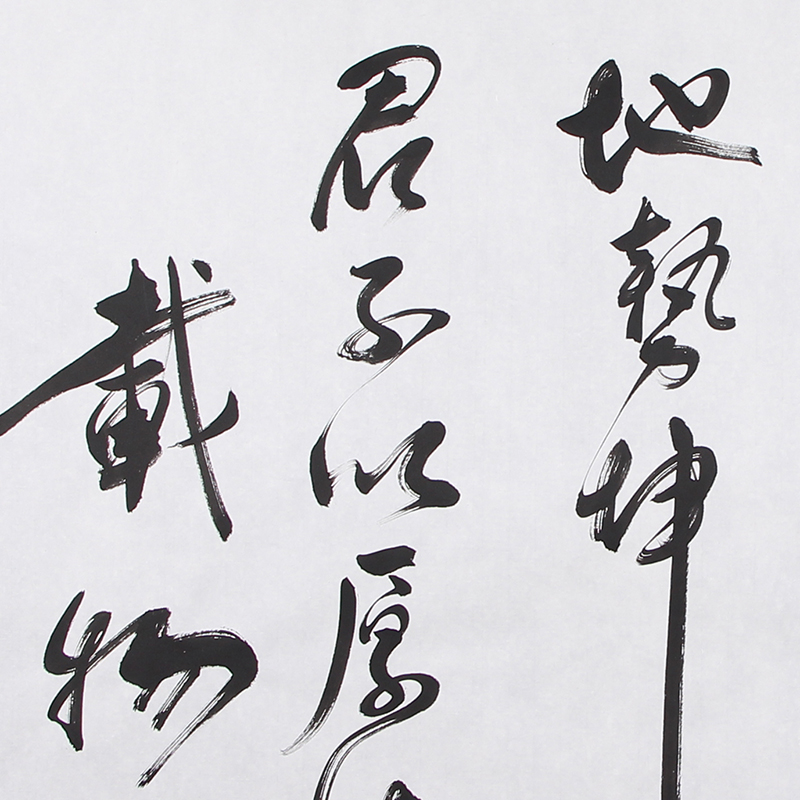 地勢坤
君子以厚
載物